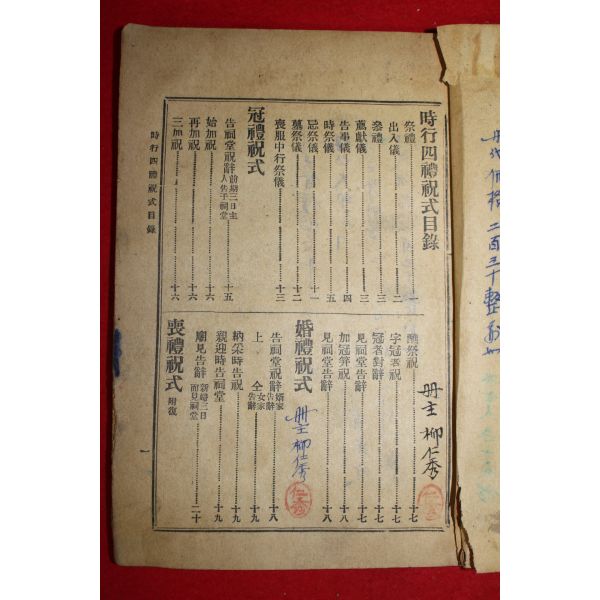 時行四禮祝式目錄
祭禮………一
出入儀………二
參禮………三
薦獻儀………三
告事儀………四
時祭儀………五
忌祭儀………十一
墓祭儀………十二
喪服中行祭儀………十三
冠禮祝式
告祠堂祝辭 前期三日主人告于祠堂………十五
始加祝………十六
再加祝………十六
三加祝………十六
醮祭祝………十七
字冠者祝………十七
冠者對辭………十七
見祠堂告辭………十七
加冠筓祝………十八
見祠堂告辭………十八
婚禮祝式
告祠堂祝辭 婿家告辭………十八
上仝 女家告辭………十九
納采時告祝………十九
親迎時告祠堂………十九
廟見告辭 新婦三日而見祠堂………二十
喪禮祝式 附復
時行四禮祝式目錄
一
册主 柳仁秀
册主 柳仁秀
二百三十